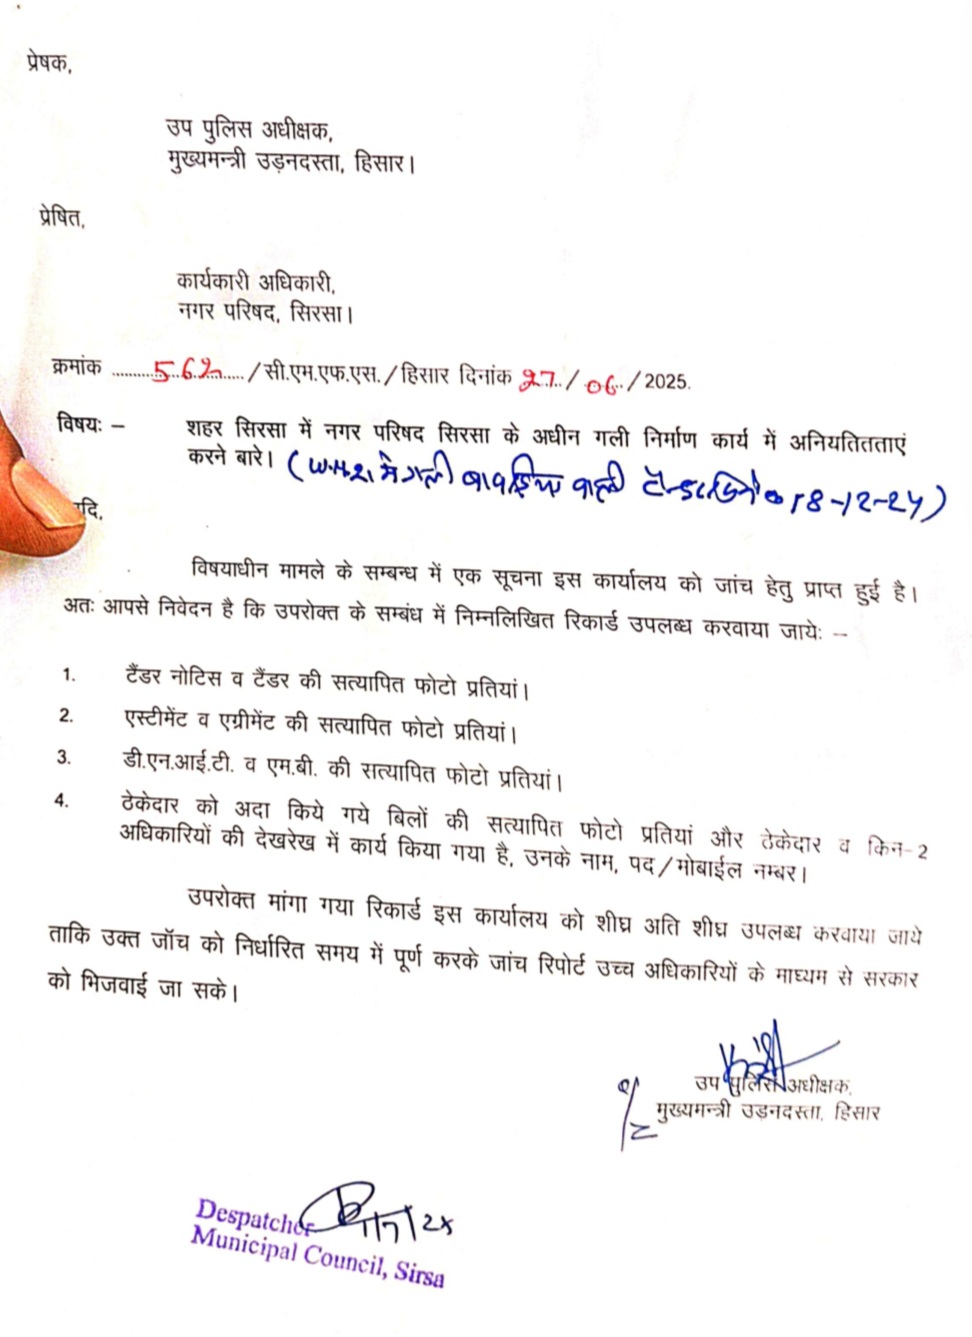 प्रेषक,
उप पुलिस अधीक्षक,
मुख्यमन्त्री उड़नदस्ता, हिसार।
प्रेषित,
कार्यकारी अधिकारी,
नगर परिषद, सिरसा।
क्रमांक ..........562...... /सी.एम.एफ.एस./हिसार दिनांक 27../06../2025.
विषयः – शहर सिरसा में नगर परिषद सिरसा के अधीन गली निर्माण कार्य में अनियतितताएं
करने बारे। ( में गली वाली 18-12-24)
दि,
विषयाधीन मामले के सम्बन्ध में एक सूचना इस कार्यालय को जांच हेतु प्राप्त हुई है।
अतः आपसे निवेदन है कि उपरोक्त के सम्बंध में निम्नलिखित रिकार्ड उपलब्ध करवाया जायेः –
1. टैंडर नोटिस व टैंडर की सत्यापित फोटो प्रतियां।
2. एस्टीमेंट व एग्रीमेंट की सत्यापित फोटो प्रतियां।
3. डी.एन.आई.टी. व एम.बी. की सत्यापित फोटो प्रतियां।
4. ठेकेदार को अदा किये गये बिलों की सत्यापित फोटो प्रतियां और ठेकेदार व किन-2
अधिकारियों की देखरेख में कार्य किया गया है, उनके नाम, पद/मोबाईल नम्बर।
उपरोक्त मांगा गया रिकार्ड इस कार्यालय को शीघ्र अति शीघ्र उपलब्ध करवाया जाये
ताकि उक्त जॉच को निर्धारित समय में पूर्ण करके जांच रिपोर्ट उच्च अधिकारियों के माध्यम से सरकार
को भिजवाई जा सके।
उप पुलिस अधीक्षक,
मुख्यमन्त्री उड़नदस्ता, हिसार
Despatcher 1/7/25
Municipal Council, Sirsa